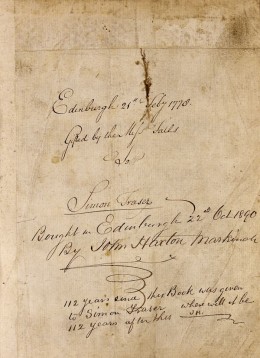 Edinburgh 21st Feby 1778.
Gifted by the
Simon Fraser
Bought in Edinburgh 22nd Oct. 1890
By John
112 years since this Book was given
to Simon Fraser where will it be
112 years after this